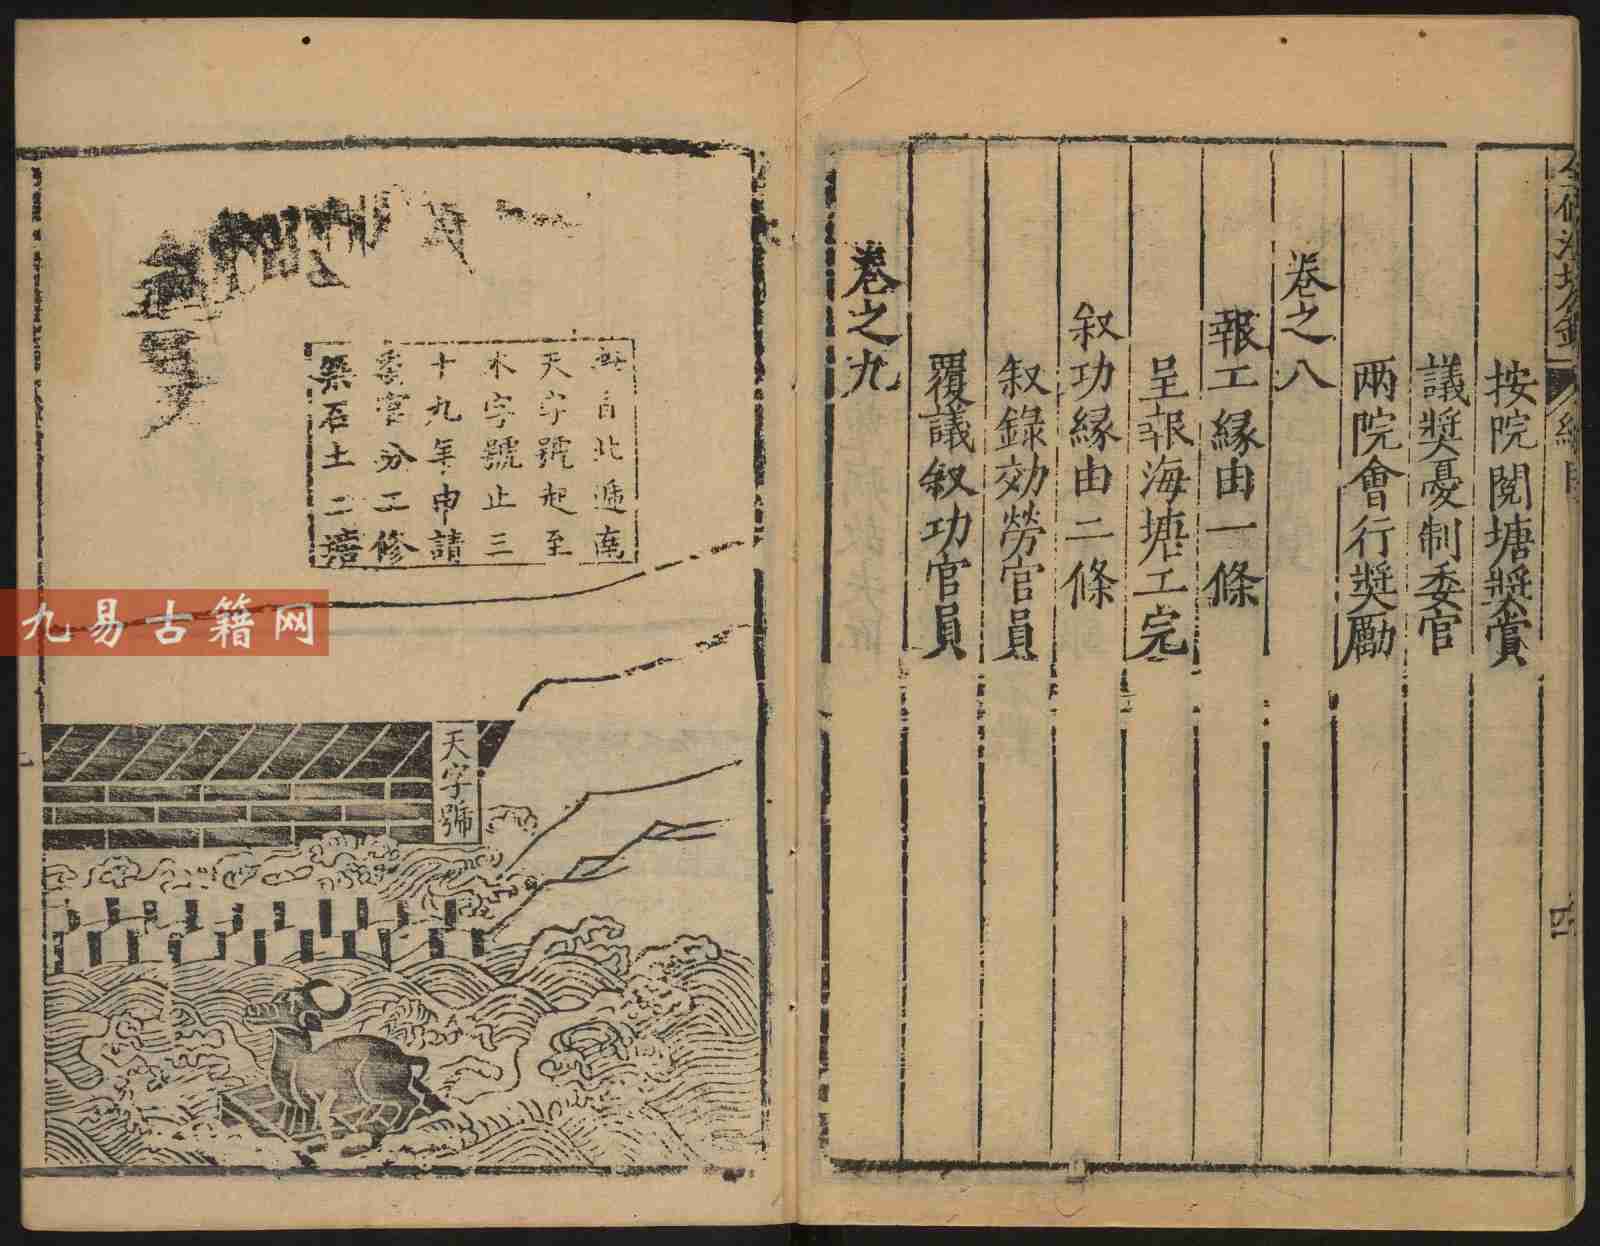 按院閱塘奬賞
議奬憂制委官
兩院會行奬勵
卷之八
報工縁由一條
呈報海塘工完
叙功縁由二條
叙錄効勞官員
覆議叙功官員
卷之九
四
自北逓南
天字號起至
木字號止三
十九年申請
委官分工修
築石土二塘
天字號
九易古籍网